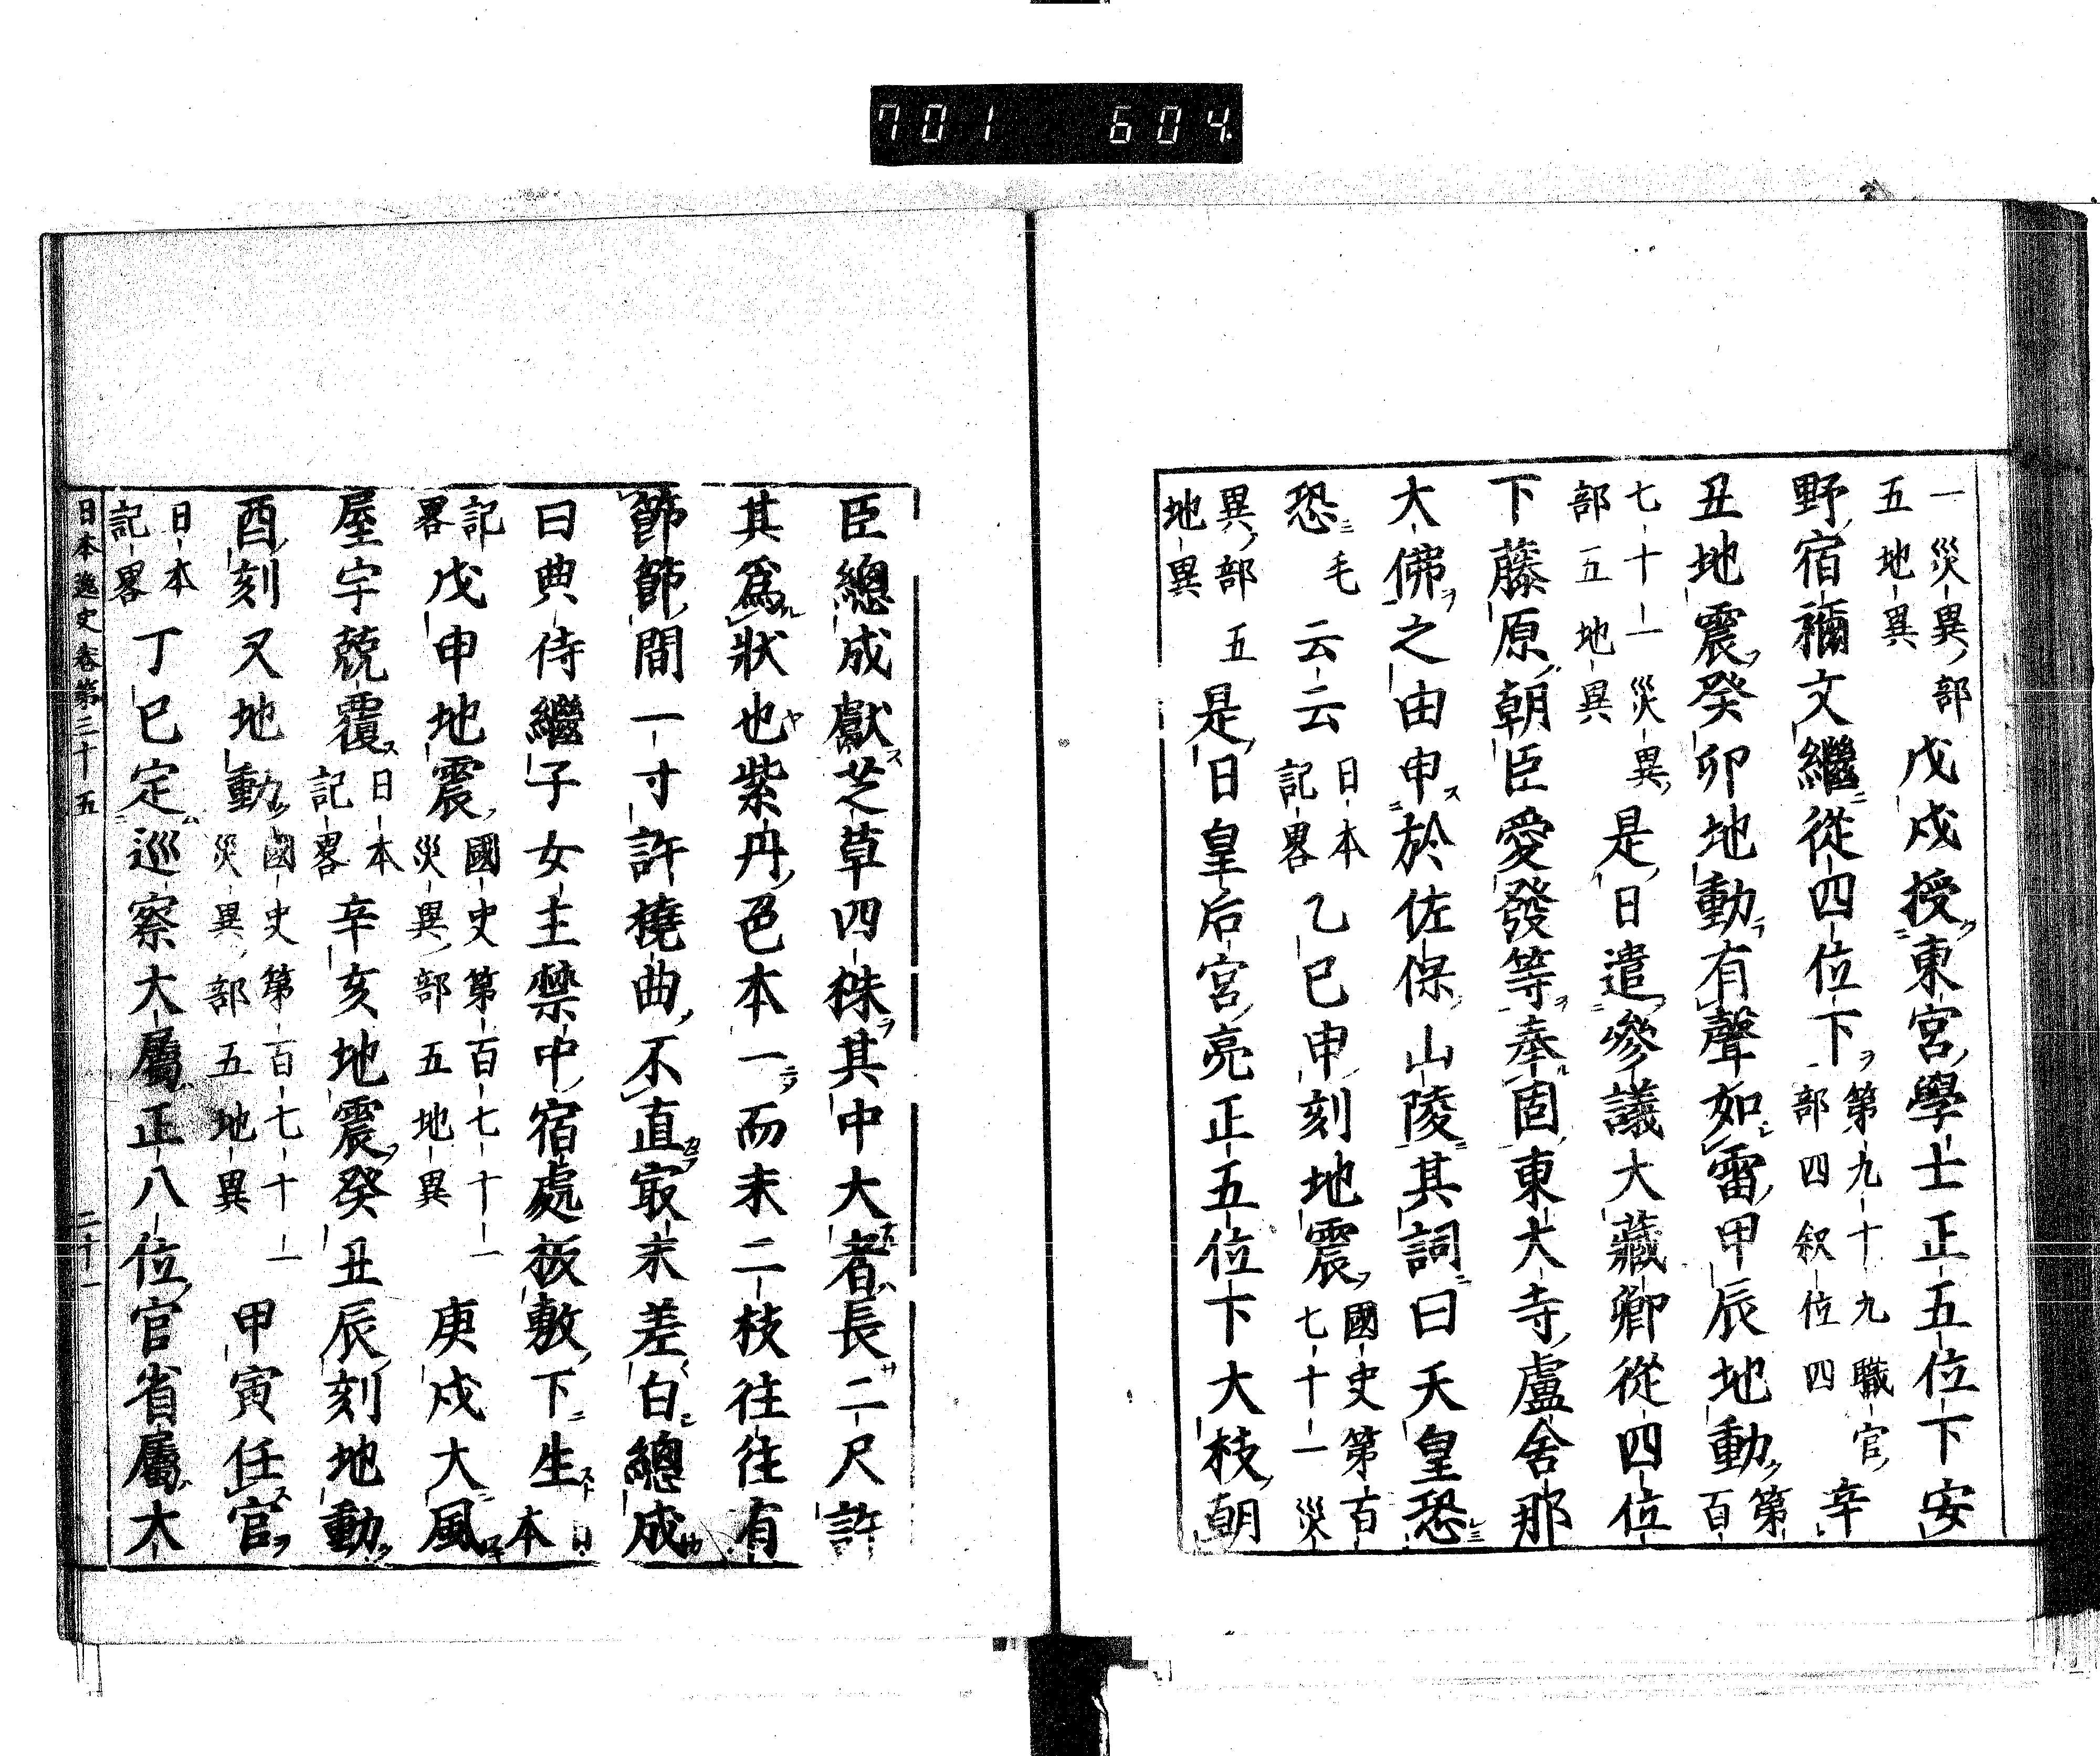 701 604
一災異部五地異戊戌授東宮學士正五位下安
野宿禰文繼從四位下第九十九職官部四叙位四辛
丑地震癸卯地動有聲如雷甲辰地動第百
七十一災異部五地異是日遣參議大藏卿從四位
下藤原朝臣愛發等奉固東大寺盧舍那
大佛之由申於佐保山陵其詞曰天皇恐
恐毛云云日本記畧乙巳申刻地震國史第百七十一災
異部五地異是日皇后宮亮正五位下大枝朝
臣總成獻芝草四株其中大者長二尺許
其爲狀也紫丹色本一而末二枝往往有
節節間一寸許橈曲不直㝡末差白總成
曰典侍繼子女主禁中宿處板敷下生日本
記畧戊申地震國史第百七十一災異部五地異庚戌大風
屋宇兢覆日本記畧辛亥地震癸丑辰刻地動
酉刻又地動國史第百七十一災異部五地異甲寅任官
日本記畧丁巳定巡察大屬正八位官省屬大
日本逸史卷第三十五 二十一